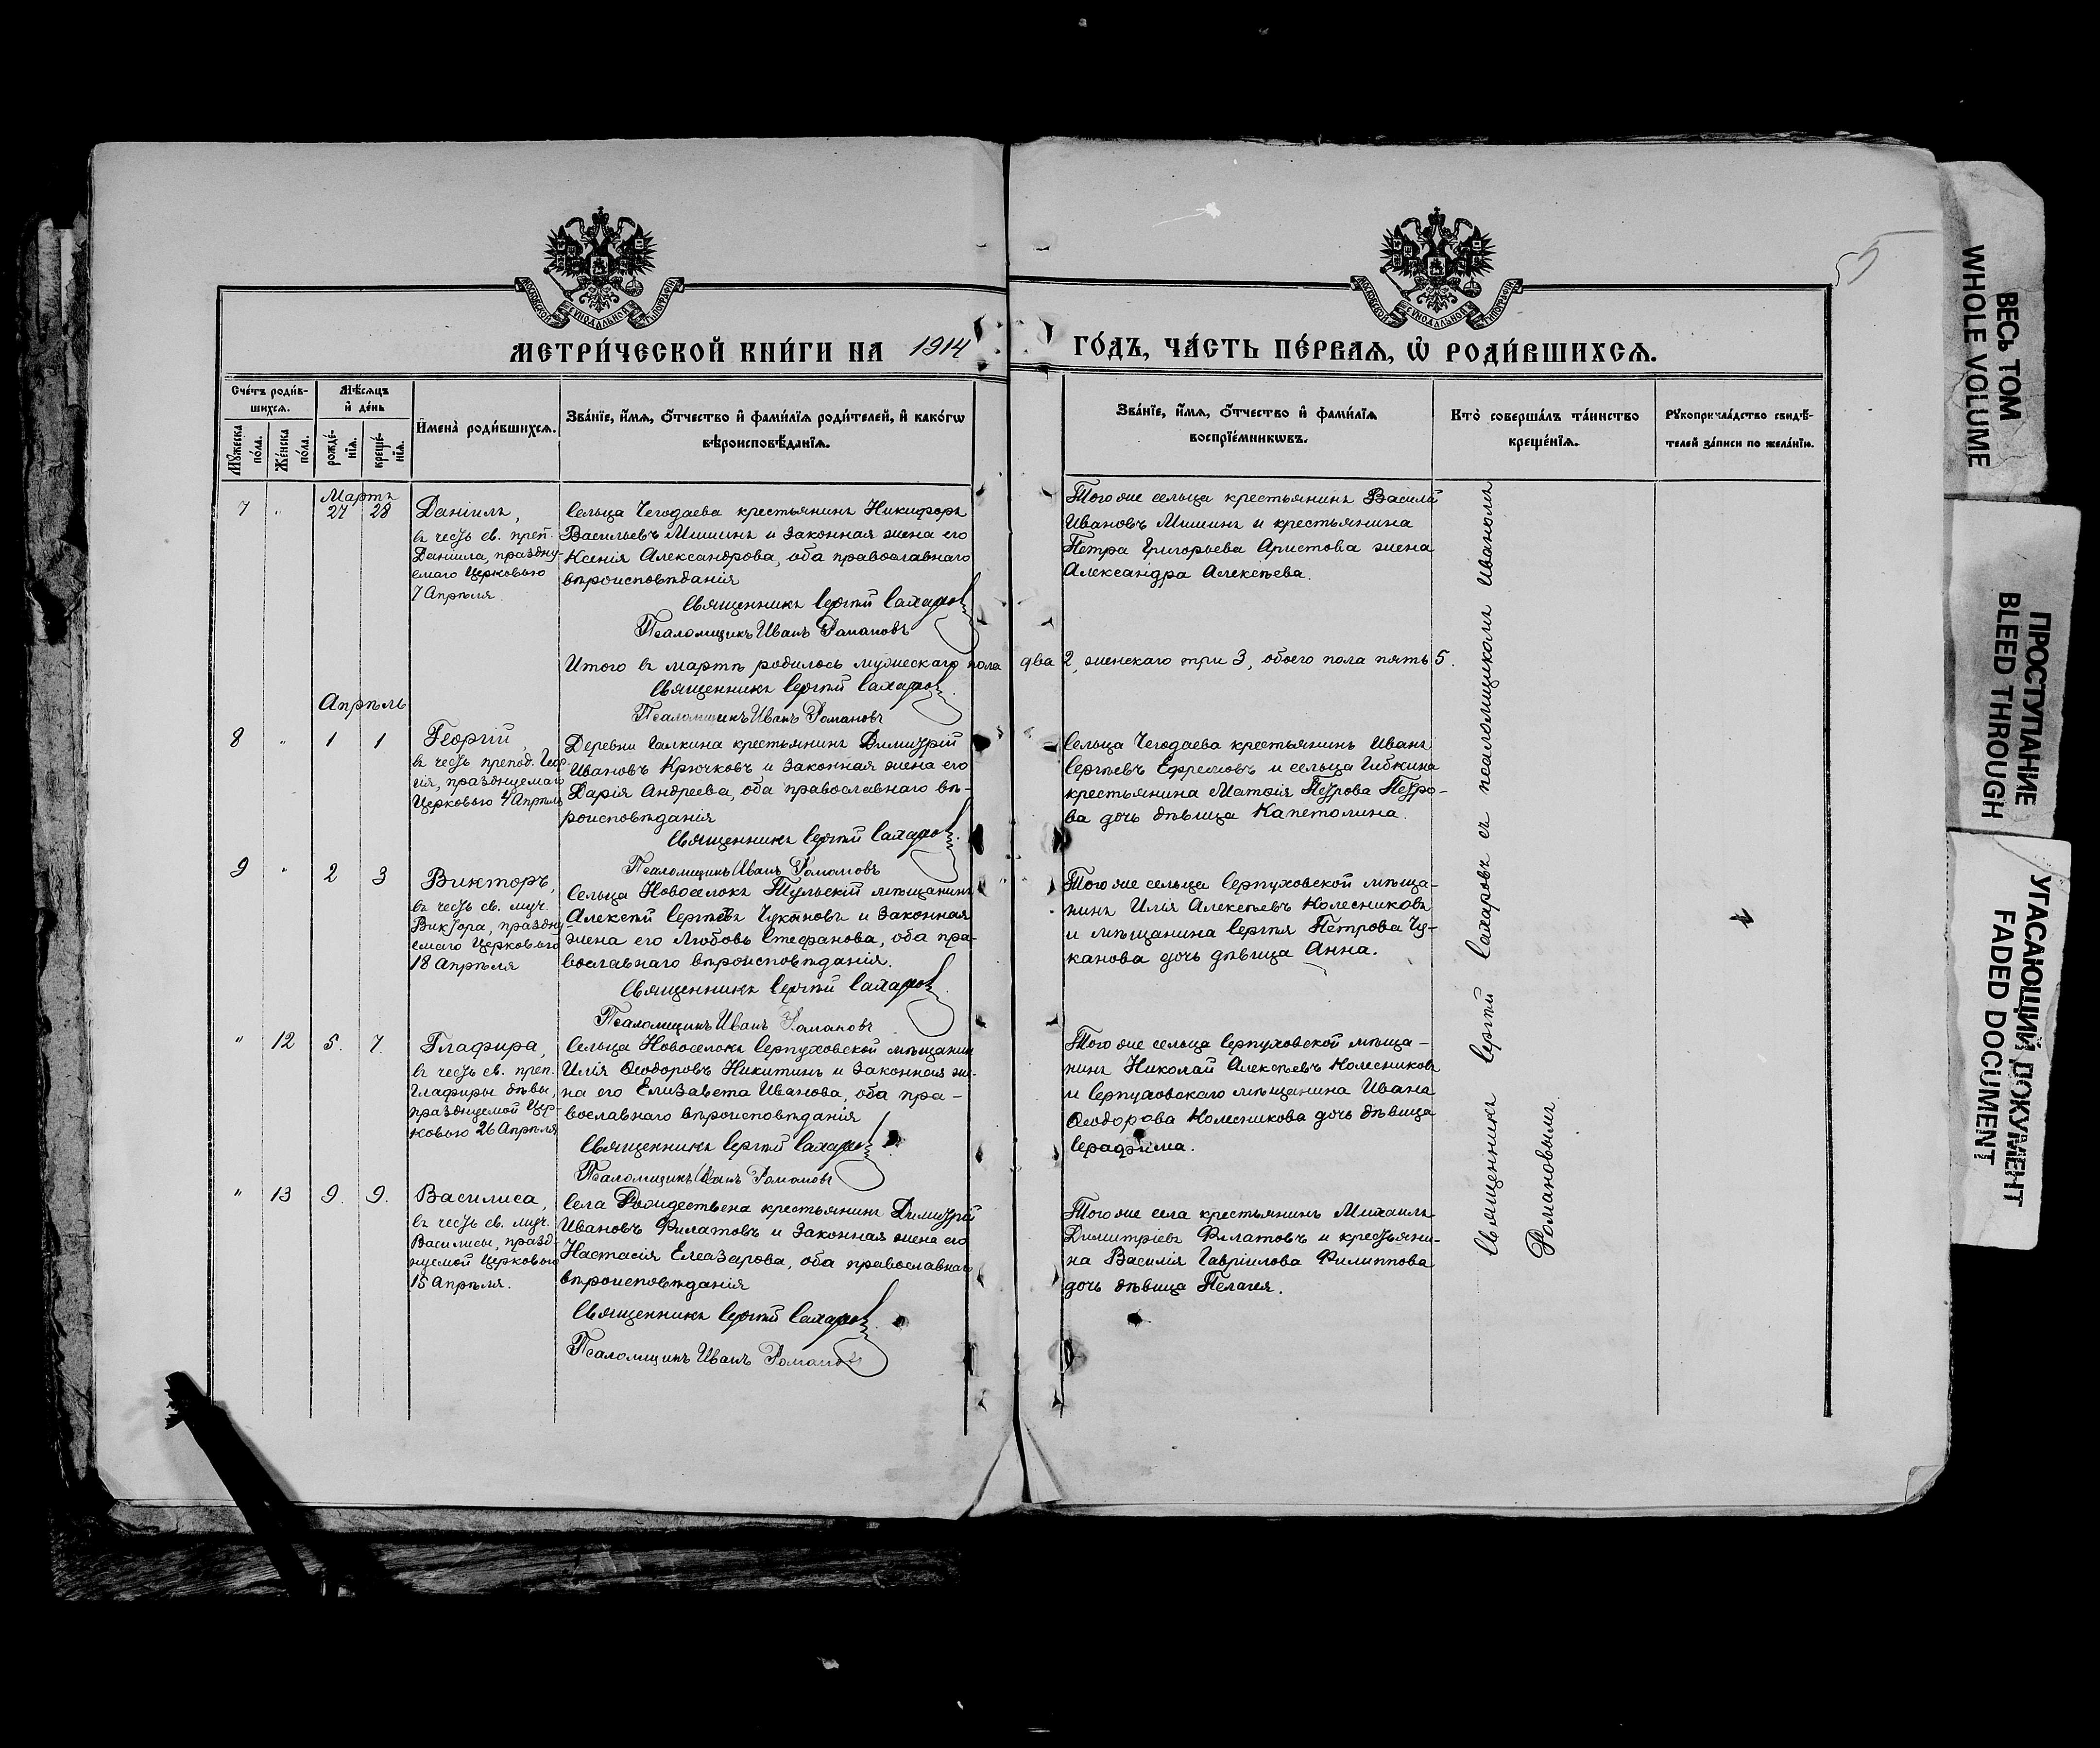 МЕТРИ́ЧЕСКОЙ КНИ́ГИ НА 1914 ГО́ДЪ, ЧА́СТЬ ПЕ́РВАЯ, Ѡ РОДИ́ВШИХСЯ.
Сче́тъ роди́в-
шихся.
Мѣ́сяцъ
и де́нь
Му́жеска
по́ла.
Же́нска
по́ла.
рожде́-
нїя.
креще́-
нїя.
Имена̀ роди́вшихся.
Зва́нїе, и́мя, о́тчество и фами́лїя роди́телей, и како́гѡ
вѣроисповѣ́данїя.
Зва́нїе, и́мя, о́тчество и фами́лїя
воспрїе́мникѡвъ.
Кто̀ соверша́лъ та́инство
креще́нїя.
Рукоприкла́дство свидѣ́-
телей за́писи по жела́нїю.
Мартъ
7 " 27 28
Даніилъ,
въ честь св. преп.
Даніила, праздну-
емаго Церковью
7 Апрѣля.
Сельца Чегодаева крестьянинъ Никифоръ
Васильевъ Мишинъ и законная жена его
Ксенія Александрова, оба православнаго
вѣроисповѣданія
Священникъ Сергій Сахаровъ
Псаломщикъ Иванъ Романовъ
Того же сельца крестьянинъ Василій
Ивановъ Мишинъ и крестьянина
Петра Григорьева Аристова жена
Александра Алексѣева.
Итого въ мартѣ родилось мужескаго пола два 2, женскаго три 3, обоего пола пять 5.
Священникъ Сергій Сахаровъ
Псаломщикъ Иванъ Романовъ
Апрѣль
8 " 1 1
Георгій,
въ честь препод. Геор-
гія, празднуемаго
Церковью 4 Апрѣля
Деревни Галкина крестьянинъ Димитрій
Ивановъ Крючковъ и законная жена его
Дарія Андреева, оба православнаго вѣ-
роисповѣданія
Священникъ Сергій Сахаровъ
Псаломщикъ Иванъ Романовъ
Сельца Чегодаева крестьянинъ Иванъ
Сергѣевъ Ефремовъ и сельца Гибкина
крестьянина Матѳія Петрова Петро-
ва дочь дѣвица Капетолина.
9 " 2 3
Викторъ,
въ честь св. муч.
Виктора, праздну-
емаго Церковью
18 Апрѣля
Сельца Новоселокъ Тульскій мѣщанинъ
Алексѣй Сергѣевъ Чукановъ и законная
жена его Любовь Стефанова, оба пра-
вославнаго вѣроисповѣданія.
Священникъ Сергій Сахаровъ
Псаломщикъ Иванъ Романовъ
Того же сельца Серпуховской мѣща-
нинъ Илія Алексѣевъ Колесниковъ
и мѣщанина Сергѣя Петрова Чу-
канова дочь дѣвица Анна.
" 12 5. 7.
Глафира,
въ честь св. преп.
Глафиры дѣвы,
празднуемой Цер-
ковью 26 Апрѣля
Сельца Новоселокъ Серпуховской мѣщанинъ
Илія Ѳеодоровъ Никитинъ и законная же-
на его Елизавета Иванова, оба пра-
вославнаго вѣроисповѣданія
Священникъ Сергій Сахаровъ
Псаломщикъ Иванъ Романовъ
Того же сельца Серпуховской мѣща-
нинъ Николай Алексѣевъ Колесниковъ
и Серпуховскаго мѣщанина Ивана
Ѳеодорова Колесникова дочь дѣвица
Серафима.
" 13 9. 9.
Василиса,
въ честь св. муч.
Василисы, празд-
нуемой Церковью
15 Апрѣля.
Села Рождествена крестьянинъ Димитрій
Ивановъ Филатовъ и законная жена его
Настасія Елеазарова, оба православнаго
вѣроисповѣданія
Священникъ Сергій Сахаровъ
Псаломщикъ Иванъ Романовъ
Того же села крестьянинъ Михаилъ
Димитріевъ Филатовъ и крестьяни-
на Василія Гавріилова Филиппова
дочь дѣвица Пелагея.
Священникъ Сергій Сахаровъ съ псаломщикомъ Иваномъ
Романовымъ.
ВЕСЬ ТОМ
WHOLE VOLUME
ПРОСТУПАНИЕ
BLEED THROUGH
УГАСАЮЩИЙ ДОКУМЕНТ
FADED DOCUMENT
МОСКОВСКОЙ СѴНОДАЛЬНОЙ ТИПОГРАФІИ
МОСКОВСКОЙ СѴНОДАЛЬНОЙ ТИПОГРАФІИ